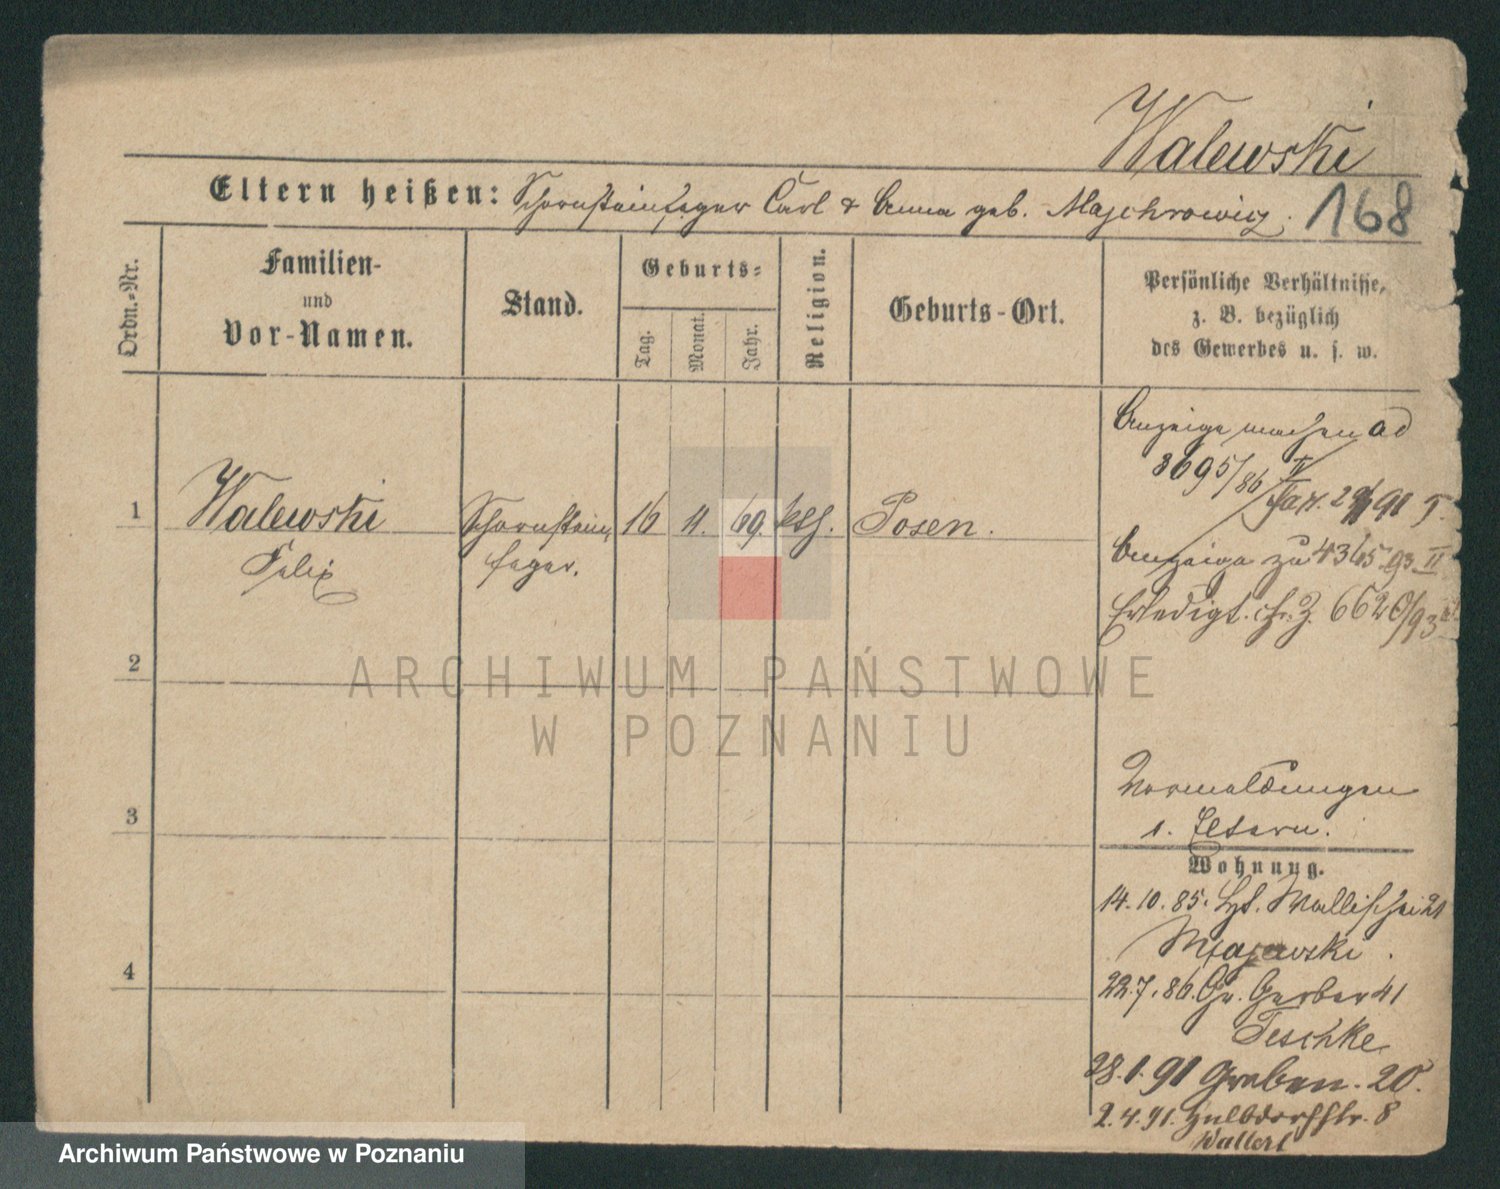 Walewski
Eltern heißen: Schornsteinfeger Carl & Anna geb. Majchrowicz.
168
Ordn.-Nr.
Familien-
und
Vor-Namen.
Stand.
Geburts-
Tag.
Monat.
Jahr.
Religion.
Geburts-Ort.
Persönliche Verhältnisse,
z. B. bezüglich
des Gewerbes u. s. w.
Anzeige machen ad
3695/86 II
91
1 Walewski Schornstein 16 4. 69. kth. Posen.
Felix feger.
Anzeige zu 4365.93 II
Erledigt. 6620/93
2
ARCHIWUM PAŃSTWOWE
W POZNANIU
Vormeldungen
s. Eltern.
3
Wohnung.
14.10.85. Wallischei 21
Majewski.
4
22.7.86. Gr. Gerber 41
Teschke
28.1.91 Graben. 20.
2.4.91. Halbdorfstr. 8
Wallert
Archiwum Państwowe w Poznaniu